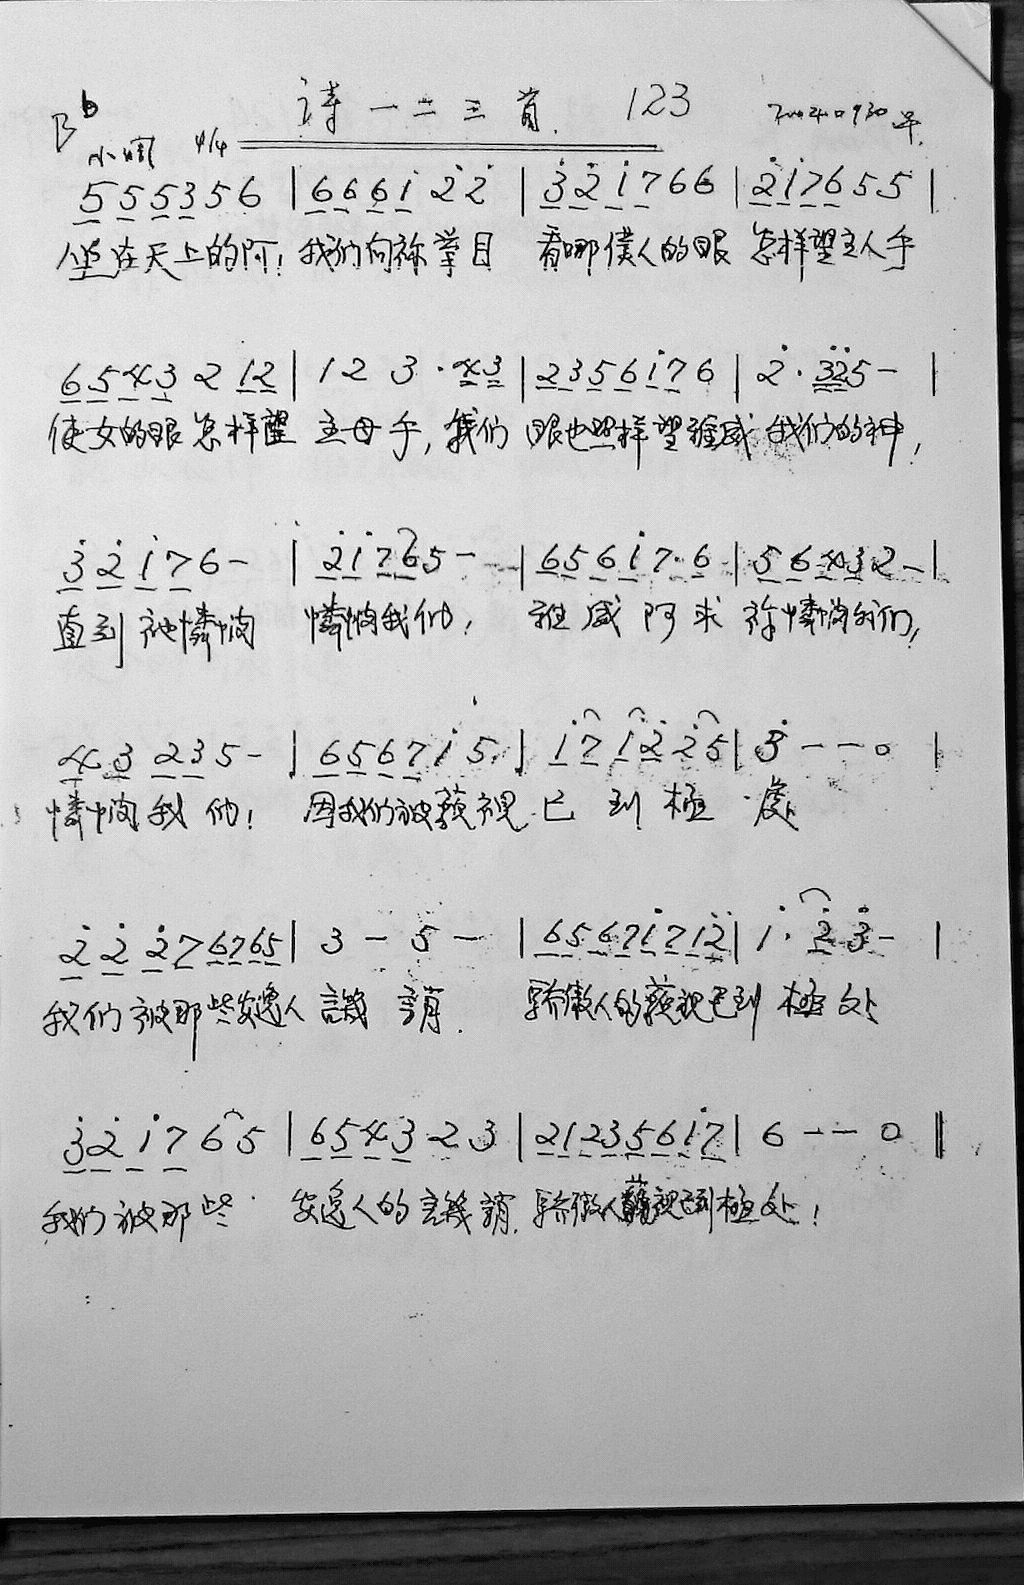 B♭ 詩一二三首. 123 20040930 早.
小調 4/4
5 5 5 3 5 6 | 6 6 6 i 2̇ 2̇ | 3̇ 2̇ i 7 6 6 | 2̇ i 7 6 5 5 |
坐在天上的阿! 我们向祢举目 看哪僕人的眼 怎样望主人手
6 5 4 3 2 1 2 | 1 2 3 · 4 3 | 2 3 5 6 i 7 6 | 2̇ · 3̇ 2̇ 5 - |
使女的眼怎样望 主母手, 我们 眼也照样望雅威 我们的神,
3̇ 2̇ i 7 6 - | 2̇ i 7 6 5 - | 6 5 6 i 7 · 6 | 5 6 4 3 2 - |
直到祂憐悯 憐悯我们, 雅威阿求 祢憐悯我们,
4 3 2 3 5 - | 6 5 6 7 i 5 | i 7 i 2̇ 2̇ 5 | 3̇ - - 0 |
憐悯我们! 因我们被藐視 已到極 處
2̇ 2̇ 2̇ 7 6 7 6 5 | 3 - 5 - | 6 5 6 7 i 7 i 2̇ | i · 2̇ 3̇ - |
我们被那些安逸人 譏 誚. 驕傲人的藐視已到 極处
3̇ 2̇ i 7 6 5 | 6 5 4 3 2 3 | 2 1 2 3 5 6 i 7 | 6 - - 0 ‖
我们被那些 安逸人的譏誚. 驕傲人藐視已到極处!